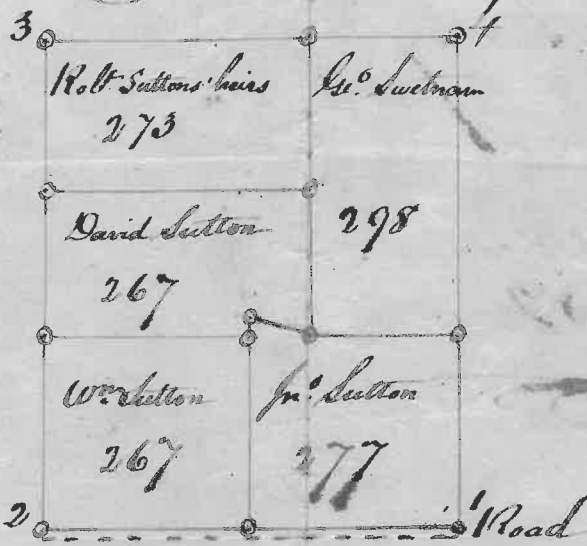 3
4
Robt. Suttons heirs
273
Geo. Swetnam
298
David Sutton
267
Wm Sutton
267
Jno. Sutton
277
2
1
Road